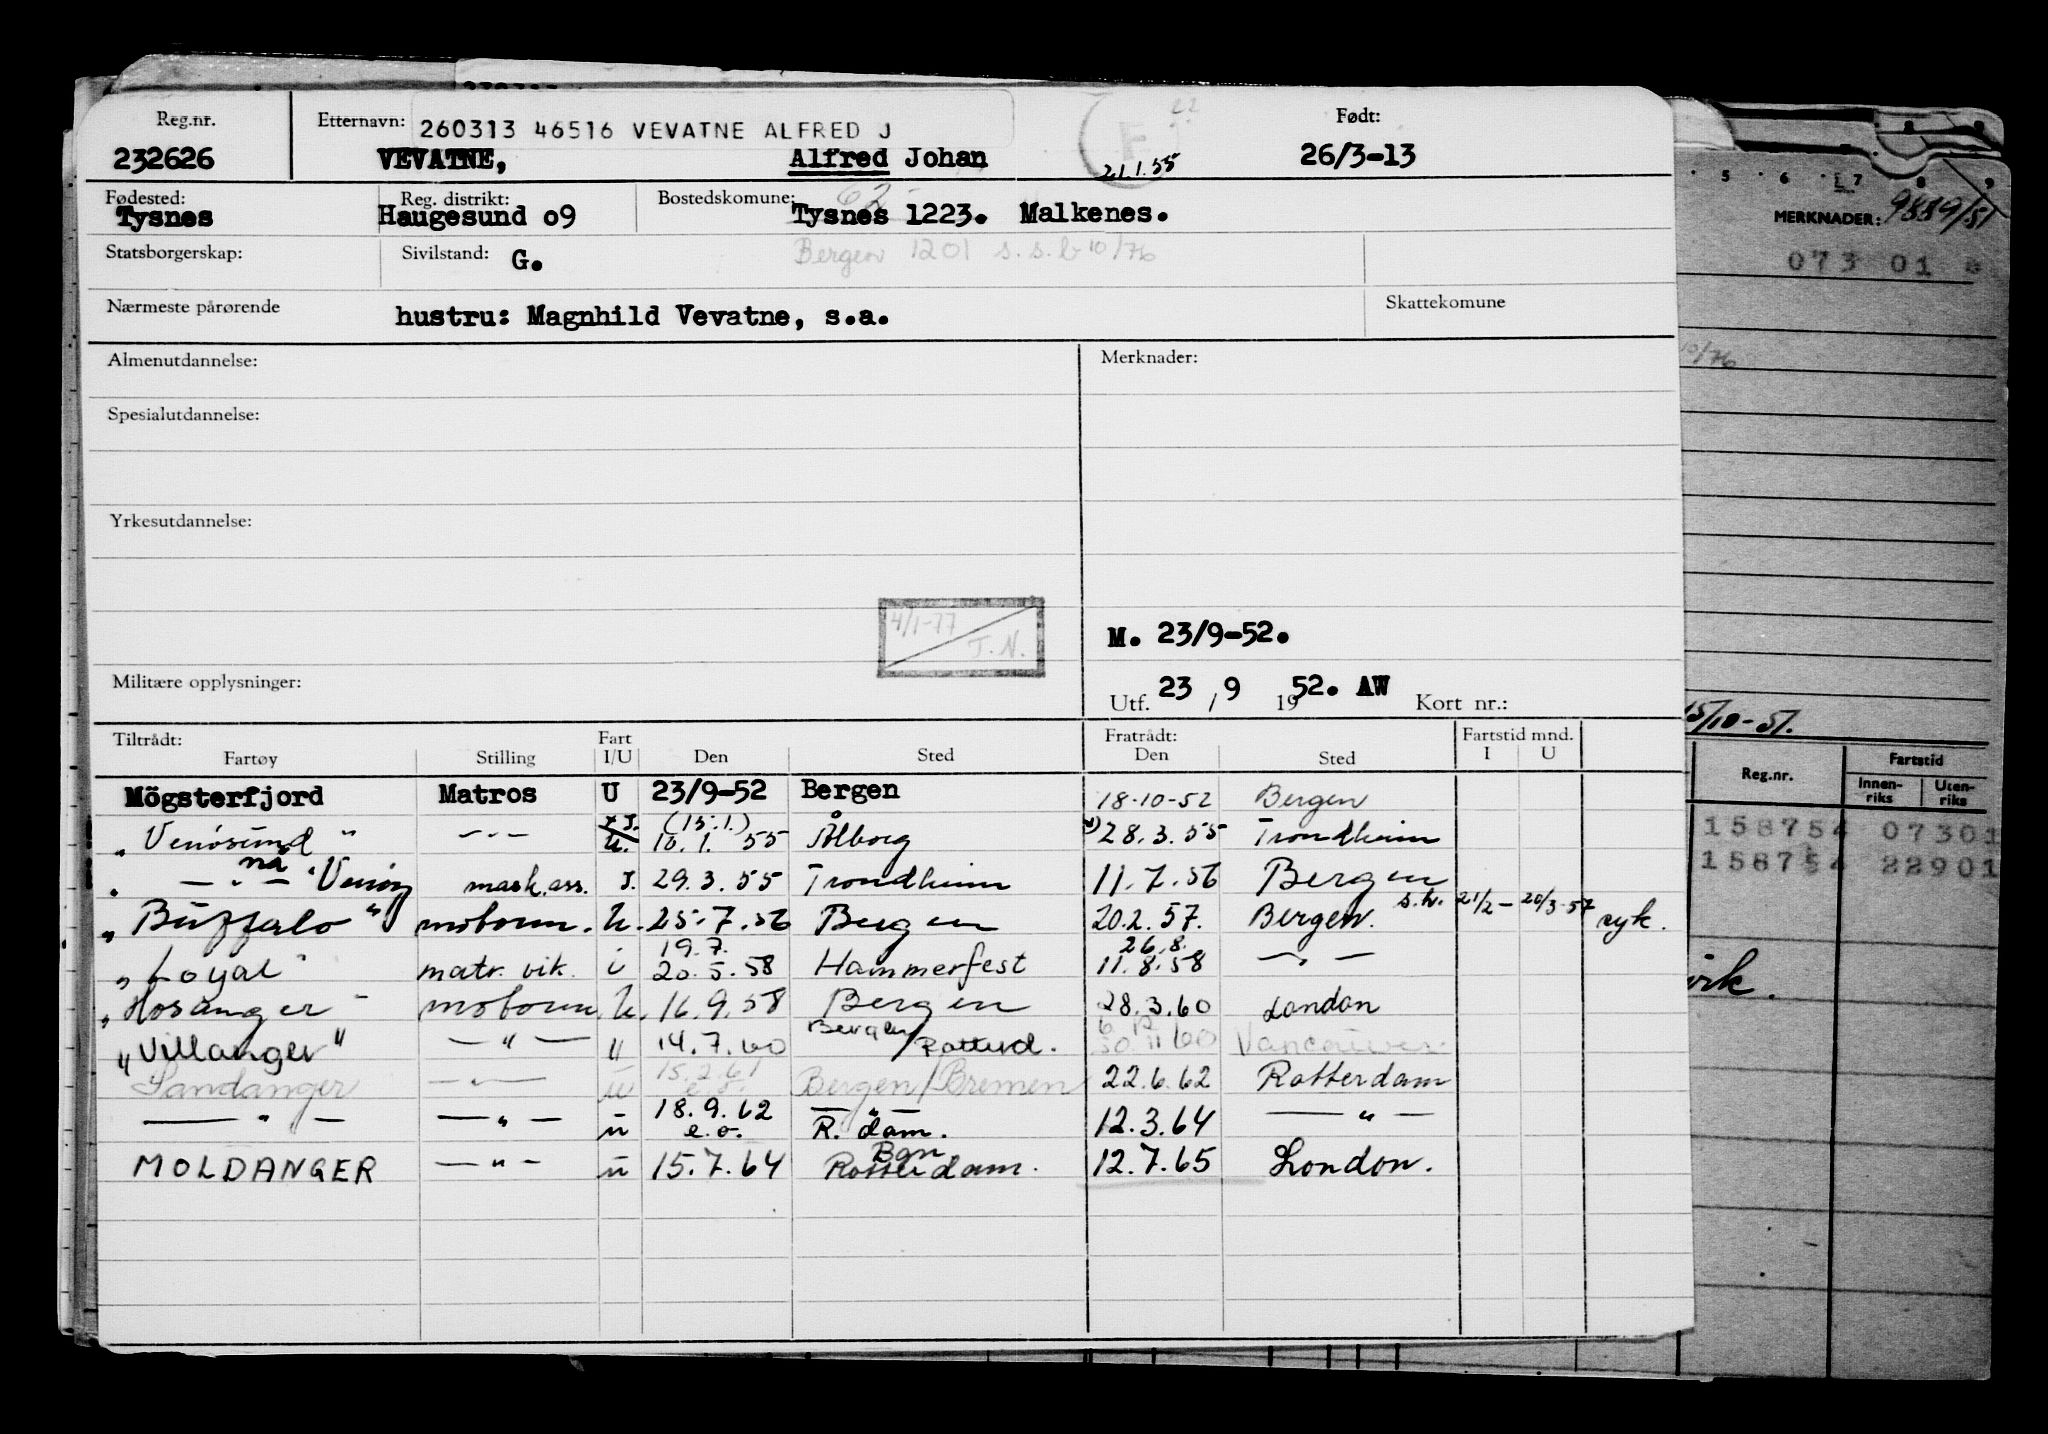 Reg.nr. Etternavn: 260313 46516 VEVATNE ALFRED J Født:
232626 VEVATNE, Alfred Johan 21.1.55 26/3-13
Fødested: Reg. distrikt: Bostedskomune: 62
Tysnes Haugesund o9 Tysnes 1223. Malkenes.
Statsborgerskap: Sivilstand: G. Bergen 1201 s.s.b 10/76
Nærmeste pårørende hustru: Magnhild Vevatne, s.a. Skattekomune
Almenutdannelse: Merknader:
Spesialutdannelse:
Yrkesutdannelse:
4/1-77 T.N.
M. 23/9-52.
Militære opplysninger: Utf. 23 / 9 19 52. AW Kort nr.:
Tiltrådt: Fart Fratrådt: Fartstid mnd.
Fartøy Stilling I/U Den Sted Den Sted I U
Mögsterfjord Matros U 23/9-52 Bergen 18-10-52 Bergen
„ Venösund " — " — (15.1.) 16.1. 55 Ålborg 28.3.55 Trondheim
„ — " — nå "Venöy mask.ass. I. 29.3.55 Trondheim 11.7.56 Bergen
„ Buffalo " motorm. U. 25.7.56 Bergen 20.2.57. Bergen. s.h. 21/2 – 20/3-57 syk.
19.7. 26.8.
„ Loyal " matr. vik. i 20.5.58 Hammerfest 11.8.58 — " —
„ Hosanger " motorm U. 16.9.58 Bergen 28.3.60 London
„ Villanger " — " — u 14.7.60 Bergen/Rotterd. 6.12 30.11 60 Vancouver
Sandanger — " — u 15.2.61 e.o. Bergen/Bremen 22.6.62 Rotterdam
— " — — " — u 18.9.62 e.o. — " — R.dam. 12.3.64 — " —
MOLDANGER — " — u 15.7.64 Bgn Rotterdam. 12.7.65 London.
5 6 7 8 9
MERKNADER: 9889/51
073 01
10/76
15/10-51.
Reg.nr. Fartstid
Innen-riks Uten-riks
158754 07301
158754 22901
vik.